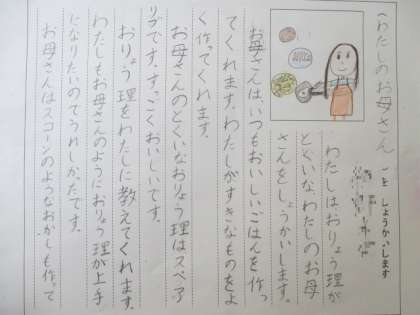 〈わたしのお母さん 〉をしょうかいします
わたしはおりょう理が
とくいなわたしのお母
さんをしょうかいします。
お母さんは、いつもおいしいごはんを作っ
てくれます。わたしがすきなものをよ
く作ってくれます。
お母さんのとくいなおりょう理はスペア
リブです。すっごくおいしいです。
おりょう理をわたしに教えてくれます。
わたしもお母さんのようにおりょう理が上手
になりたいのでうれしかたです。
お母さんはスコーンのようなおかしも作って